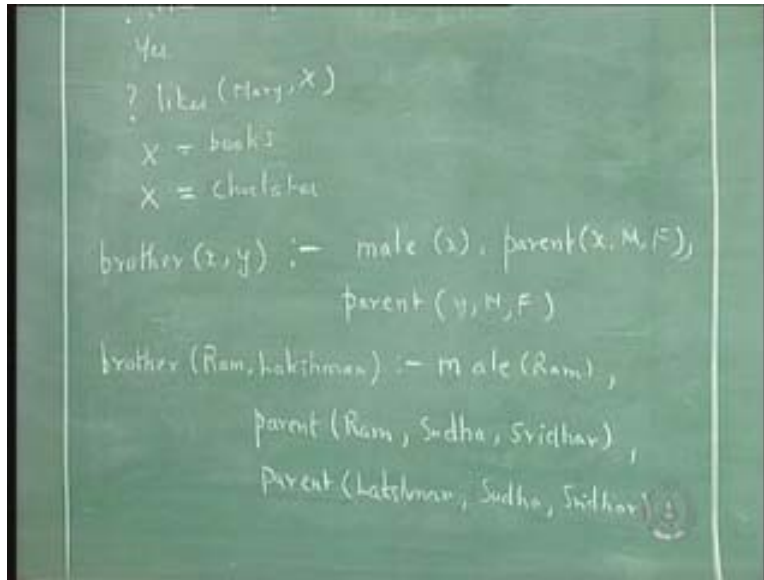 Yes
? likes (Mary, X)
X = books
X =
brother (x, y) :- male (x), parent (x, M, F),
parent (y, M, F)
brother (Ram, Lakshman) :- male (Ram),
parent (Ram, Sudha, Sridhar),
parent (Lakshman, Sudha, Sridhar)